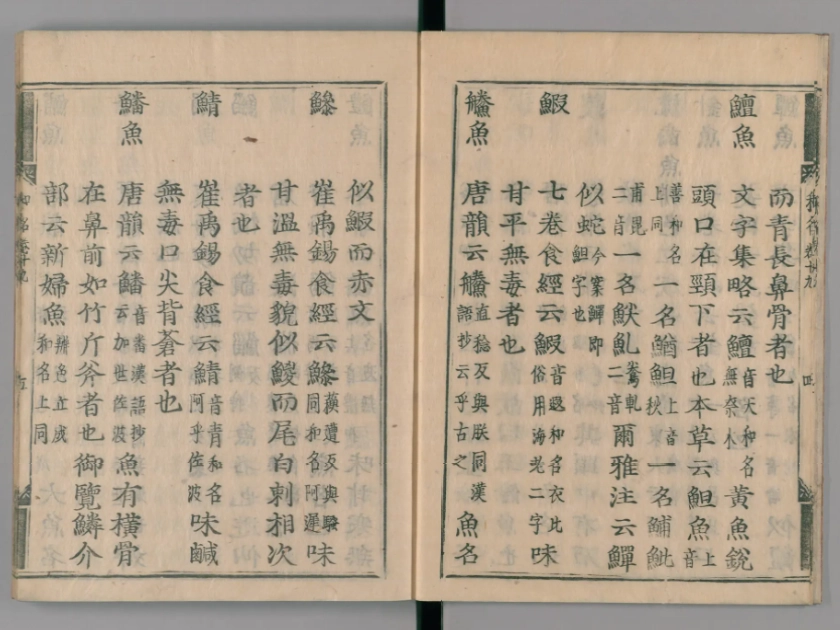 而青長鼻骨者也
鱣魚 文字集略云鱣音天和名無奈木黄魚鋭
頭口在頸下者也本草云䱇魚上音
善和名上同一名鰌䱇上音秋一名鯆魮
甫毘二音一名鴦軋二音爾雅注云鱓
似蛇今案鱓即䱇字也
鰕 七卷食經云鰕音遐和名衣比俗用海老二字味
甘平無毒者也
魚 唐韻云直稔反與朕同漢語抄云乎古之魚名
似鰕而赤文
鰺 崔禹錫食經云鰺蘓遭反與騒同和名阿遲味
甘温無毒貌似鯼而尾白刺相次
者也
鯖 崔禹錫食經云鯖音青和名阿乎佐波味鹹
無毒口尖背蒼者也
鱕魚 唐韻云鱕音番漢語抄云加世佐波魚有横骨
在鼻前如竹斤斧者也御覽鱗介
部云新婦魚辨色立成和名上同